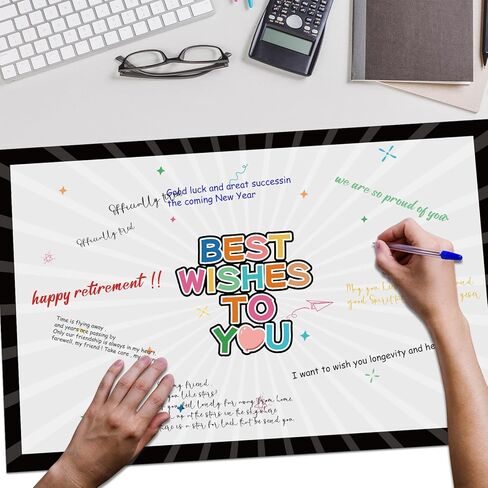 Officially
Good luck and great successin
the coming New Year
Officially
we are so proud of you
BEST
WISHES
TO
YOU
happy retirement !!
May you
good
Time is flying away ,
and years are passing by
Only our friendship is always in my heart,
farewell, my friend ! Take care , my
I want to wish you longevity and he
friend
you like stars?
you feel lonely far away from home
up at the stars in the sky where
here is a star for luck that be send you